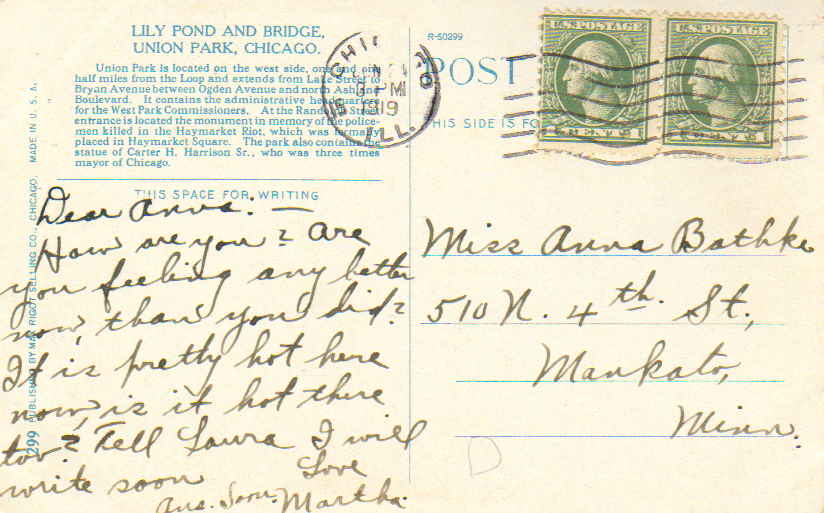 LILY POND AND BRIDGE,
UNION PARK, CHICAGO.
Union Park is located on the west side, one and one
half miles from the Loop and extends from Lake Street to
Bryan Avenue between Ogden Avenue and north Ashland
Boulevard. It contains the administrative headquarters
for the West Park Commissioners. At the Randolph Street
entrance is located the monument in memory of the police-
men killed in the Haymarket Riot, which was formally
placed in Haymarket Square. The park also contains the
statue of Carter H. Harrison Sr., who was three times
mayor of Chicago.
THIS SPACE FOR WRITING
Dear Anna: —
How are you? Are
you feeling any better
now, than you did?
It is pretty hot here
now, is it hot there
too? Tell Laura I will
write soon
Love
Ans. Soon. Martha.
299 PUBLISHED BY MAX RIGOT SELLING CO., CHICAGO, MADE IN U. S. A.
R-50299
POST
THIS SIDE IS FO
CHICAGO
PM
1919
ILL.
U.S. POSTAGE
U.S. POSTAGE
1 CENTS 1
1 CENTS 1
Miss Anna Bathke
510 N. 4th. St.,
Mankato,
Minn.
D